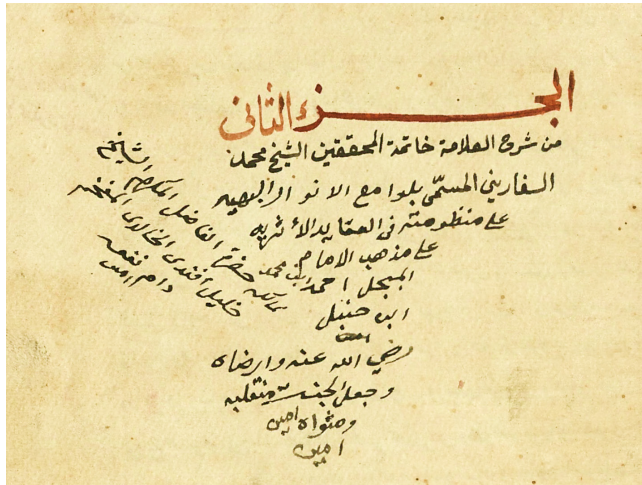 الجزء الثاني
من شرح العلامة خاتمة المحققين الشيخ محمد
السفاريني المسمى بلوامع الانوار البهيه
على منظومته في العقايد الأثريه
على مذهب الامام
المبجل احمد ابن محمد
ابن حنبل
رضي الله عنه وارضاه
وجعل الجنة متقلبه
ومثواه امين
امين
حضرة الفاضل المكرم الشيخ
خليل افندي الخالدي المفخم
دام نفعه
امين